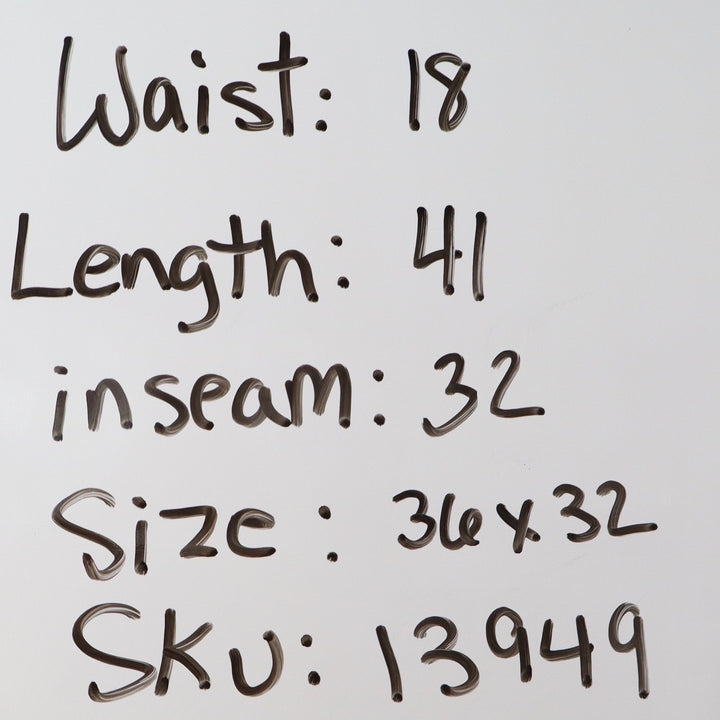 Waist: 18
Length: 41
inseam: 32
Size: 36x32
Sku: 13949